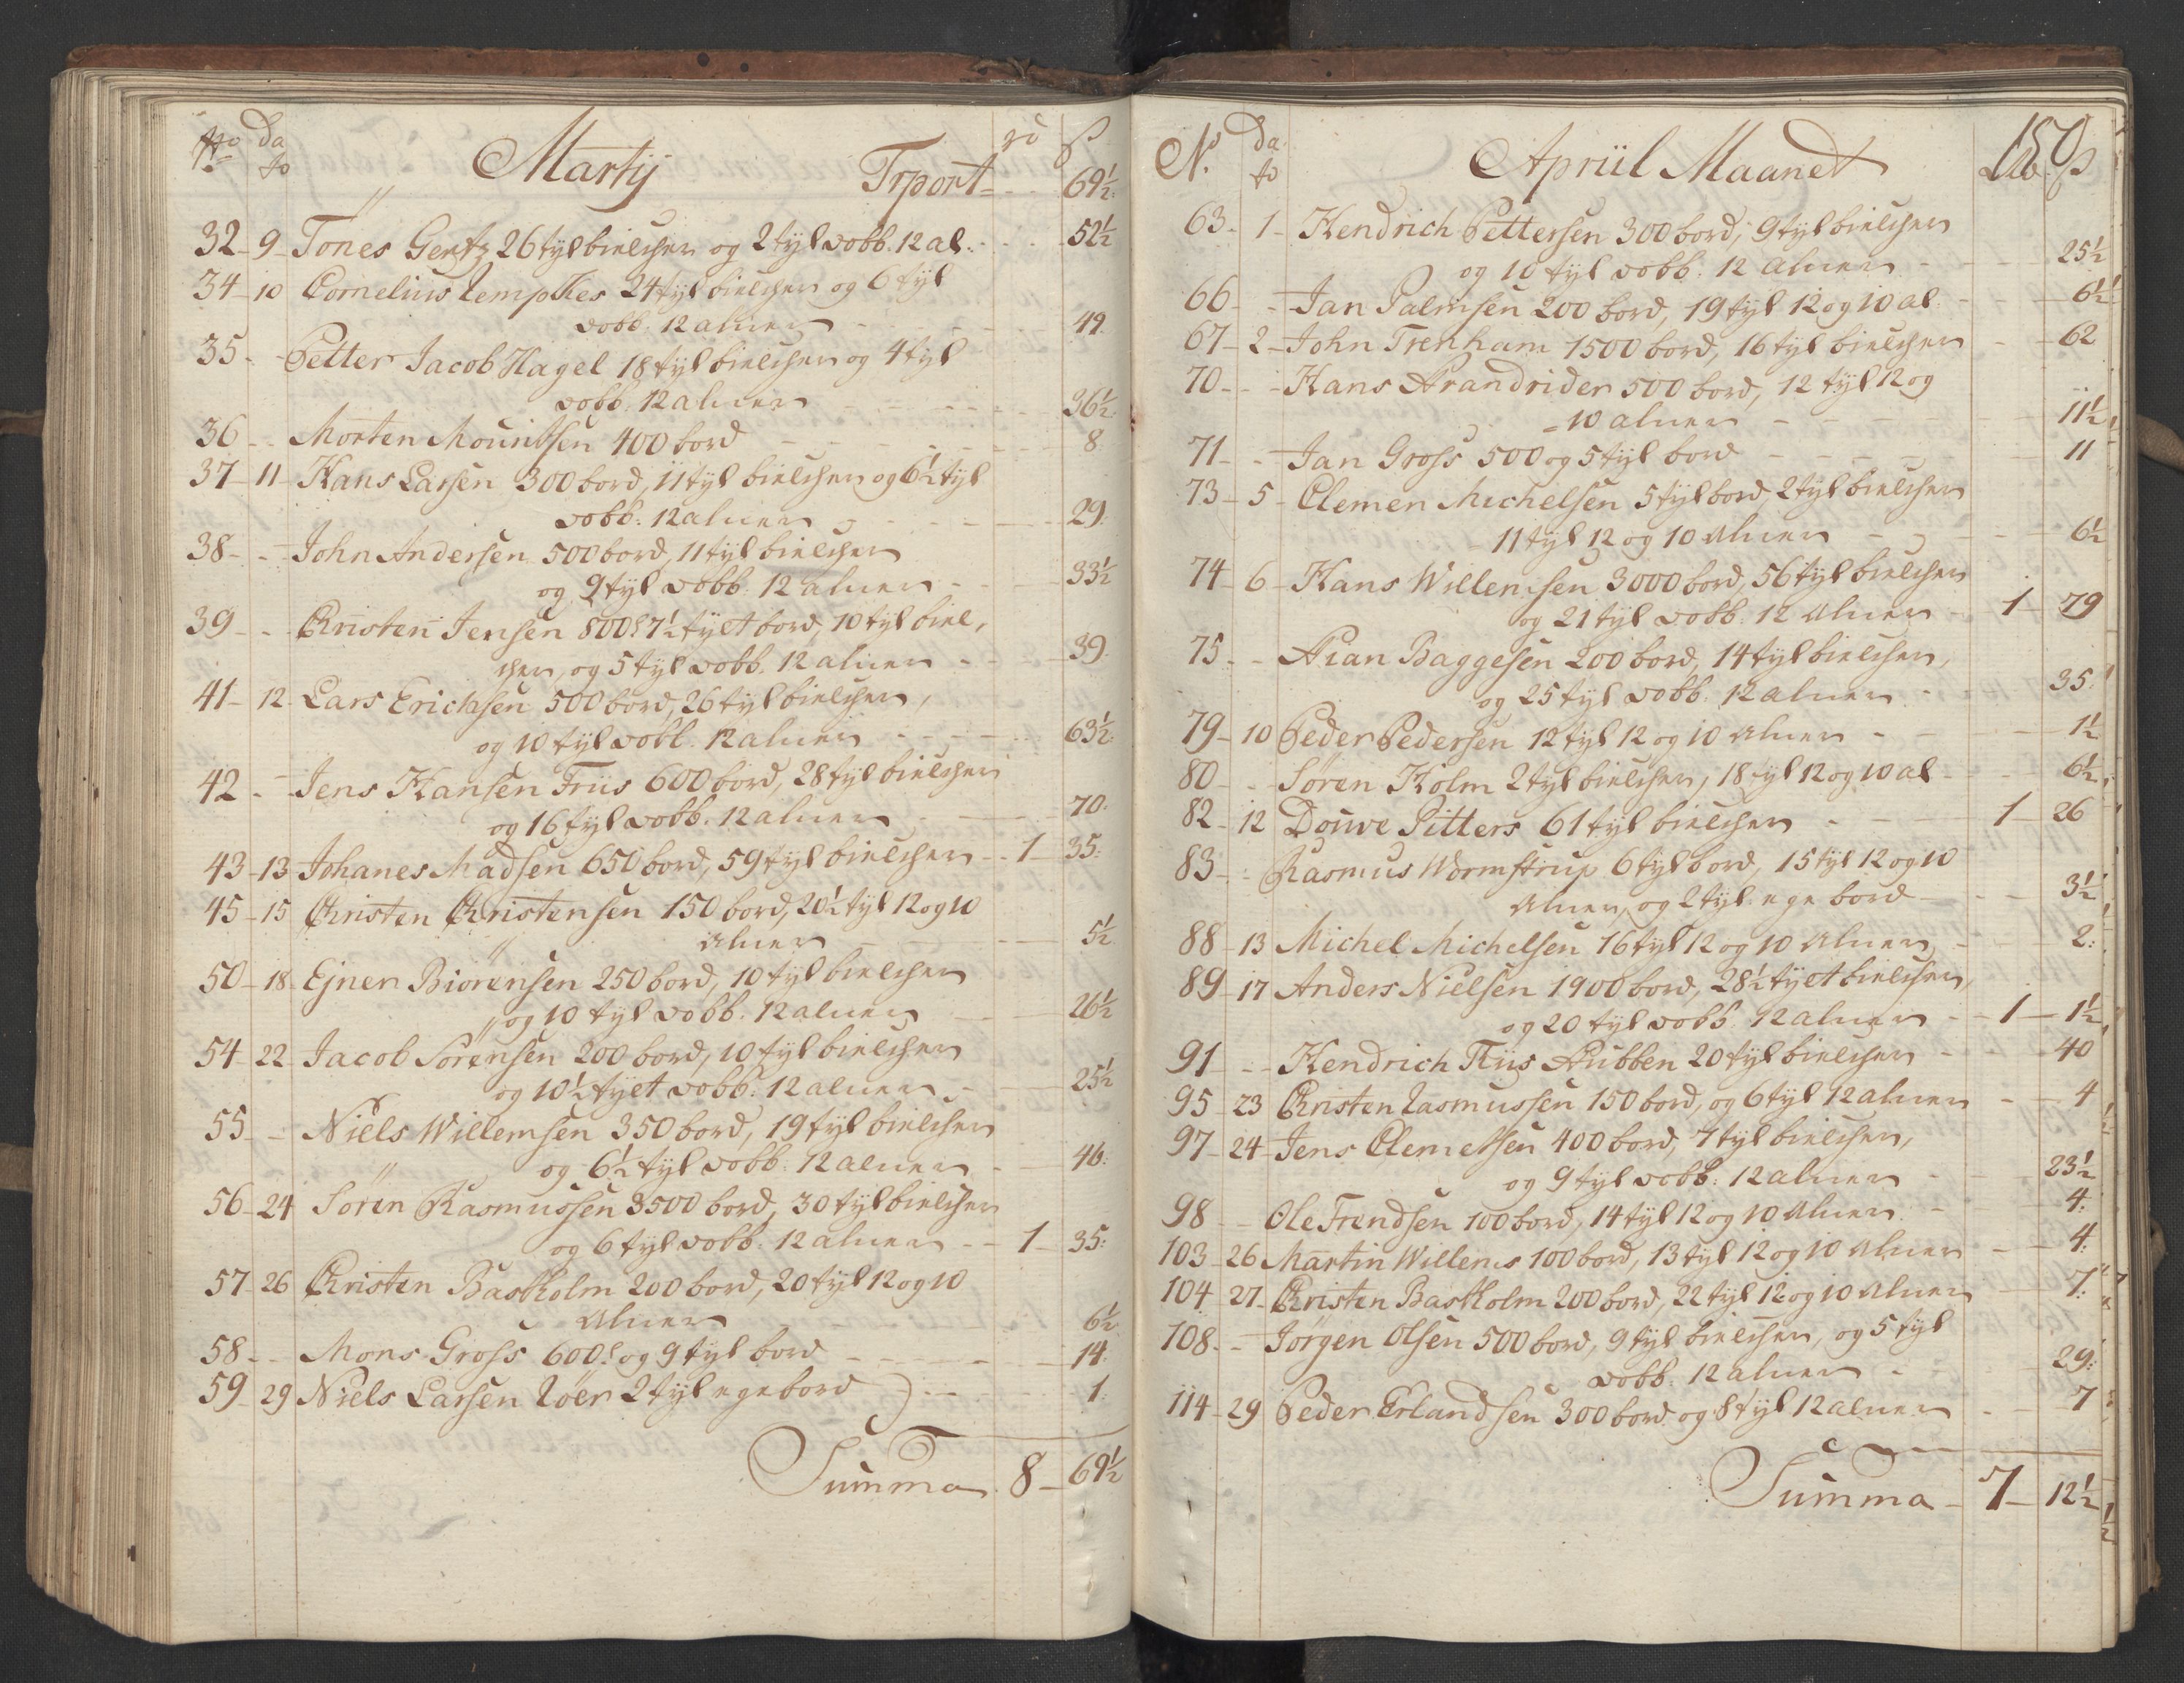 No da
to
Martij
Trport
69½
32 9 Tones Gertz 26 tyl bielcher og 2 tyl vobb. 12 al. 52½
34 10 Cornelius Rempkes 24 tyl bielcher og 6 tyl
vobb. 12 alner 49
35 - Petter Jacob Hagel 18 tyl bielcher og 4 tyl
vobb. 12 alner 36½
36 - Morten Mouritsen 400 bord 8
37 11 Hans Larsen 300 bord, 11 tyl bielcher og 6½ tyl
vobb. 12 alner 29
38 - John Andersen 500 bord, 11 tyl bielcher
og 9 tyl vobb. 12 alner 33½
39 - Christen Jensen 800 7½ tylt bord, 10 tyl biel,
cher, og 5 tyl vobb. 12 alner 39
41 12 Lars Erichsen 500 bord, 26 tyl bielcher,
og 10 tyl vobb. 12 alner 63½
42 - Jens Hansen Friis 600 bord, 28 tyl bielcher
og 16 tyl vobb. 12 alner 70
43 13 Johanes Madsen 650 bord, 59 tyl bielcher 1 35
45 15 Christen Christensen 150 bord, 20½ tyl 12 og 10
Alner 5½
50 18 Ejner Biörensen 250 bord, 10 tyl bielcher
og 10 tyl vobb. 12 alner 26½
54 22 Jacob Sörensen 200 bord, 10 tyl bielcher
og 10½ tylt vobb. 12 alner 25½
55 - Niels Willemsen 350 bord, 19 tyl bielcher
og 6½ tyl vobb. 12 alner 46
56 24 Sören Rasmussen 3500 bord, 30 tyl bielcher
og 6 tyl vobb. 12 alner 1 35
57 26 Christen Bastholm 200 bord, 20 tyl 12 og 10
Alner 6½
58 - Mons Gross 600 og 9 tyl bord 14
59 29 Niels Larsen Röer 2 tyl ege bord 1
Summa 8 69½
No. da
to
Apriil Maanet
150
63 1 Hendrich Pettersen 300 bord, 9 tyl bielcher
og 10 tyl vobb. 12 Alner 25½
66 - Jan Palmsen 200 bord, 19 tyl 12 og 10 al. 6½
67 2 John Trenham 1500 bord, 16 tyl bielcher 62
70 - Hans Arandrider 500 bord, 12 tyl 12 og
10 alner 11½
71 - Jan Gross 500 og 5 tyl bord 11
73 5 Clemen Michelsen 5 tyl bord, 2 tyl bielcher
11 tyl 12 og 10 Alner 6½
74 6 Hans Willemsen 3000 bord, 56 tyl bielcher
og 21 tyl vobb. 12 Alner 1 79
75 - Arian Baggesen 200 bord, 14 tyl bielcher,
og 25 tyl vobb. 12 alner 35
79 10 Peder Pedersen 12 tyl 12 og 10 Alner 1½
80 - Sören Holm 2 tyl bielcher, 18 tyl 12 og 10 al 6½
82 12 Douwe Pitters 61 tyl bielcher 1 26
83 - Rasmus Wormstrup 6 tyl bord, 15 tyl 12 og 10
Alner, og 2 tyl. ege bord 3½
88 13 Michel Michelsen 16 tyl 12 og 10 Alner 2
89 17 Anders Nielsen 1900 bord, 28½ tylt bielcher,
og 20 tyl vobb. 12 alner 1 1½
91 - Hendrich Tiis Aubben 20 tyl bielcher 40
95 23 Christen Rasmussen 150 bord, og 6 tyl 12 alner 4
97 24 Jens Clemetsen 400 bord, 7 tyl bielcher,
og 9 tyl vobb. 12 alner 23½
98 - Ole Trendsen 100 bord, 14 tyl 12 og 10 Alner 4
103 26 Martin Willems 100 bord, 13 tyl 12 og 10 Alner 4
104 27 Christen Bastholm 200 bord, 22 tyl 12 og 10 Alner 7
108 - Jörgen Olsen 500 bord, 9 tyl bielcher, og 5 tyl
vobb. 12 alner 29
114 29 Peder Erlandsen 300 bord og 8 tyl 12 alner 7
Summa 7 12½